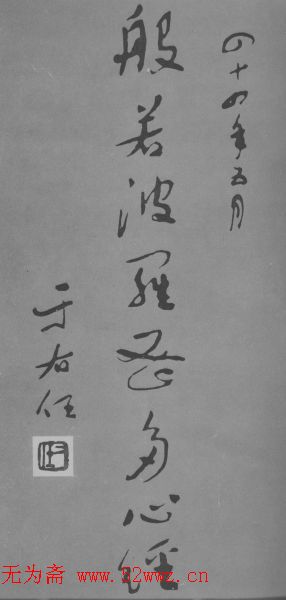 四十四年五月
般若波羅蜜多心經
于右任
无为斋 www.82wwz.cn